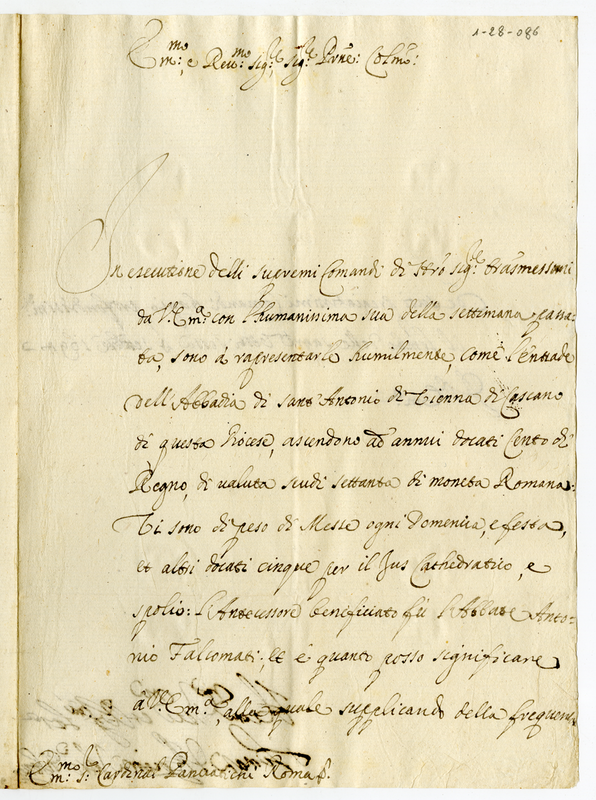 1-28-086
E.mo e Reu.mo Sig.re, Sig.re Prne: Colmo:
In esecutione delli supremi Comandi di Nro Sig.re trasmessomi
da V. Em.a con l'humanissima sua della settimana passa-
ta, sono à rapresentarle humilmente, come l'entrade
dell'Abbadia di Sant'Antonio di Tienna di Cascano
di questa Diocese, ascendono ad annui docati Cento di
Regno, di valuta scudi settanta di moneta Romana:
Vi sono di peso di Messe ogni Domenica, e festa,
et altri docati cinque per il Jus Cathedratico, e
spolio: l'Antecessore beneficiato fù l'Abbate Anto-
nio Falcomati; Et è quanto posso significare
a V. Em.a, alla quale supplicando della frequenz
E.mo S.r Cardinal Panciatichi Roma